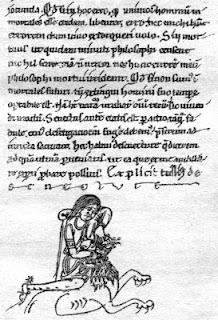 iocunda. Qđ si in hoc erro, q animos hominum in
mortales esse credam, libenter erro. nec michi hunc
errorem dum uiuo extorqueri uolo. Si mor
tuus ut quidam minuti philosophi censent
nichil sentiā, ñ uereor ne hunc errorē meū
philosophi mortui irrideant. Qđ si non sum' in
mortales futuri, tam̄ extingui homini suo tempore
optabile est. Nā habet natura ut aliarū omniū rerū sic uiuen
di modū. Senectus autē etatis est peractio tāquā fa
bule, cuius defetigationem fugere debem'. p̄sertim ad
iuncta satietate. hec habui de senectute que dicerem,
ad quā utinā pueniatis. ut ea que ex me audistis
re experti pbare possitis. Explicit tulli' de
SENECTUTE